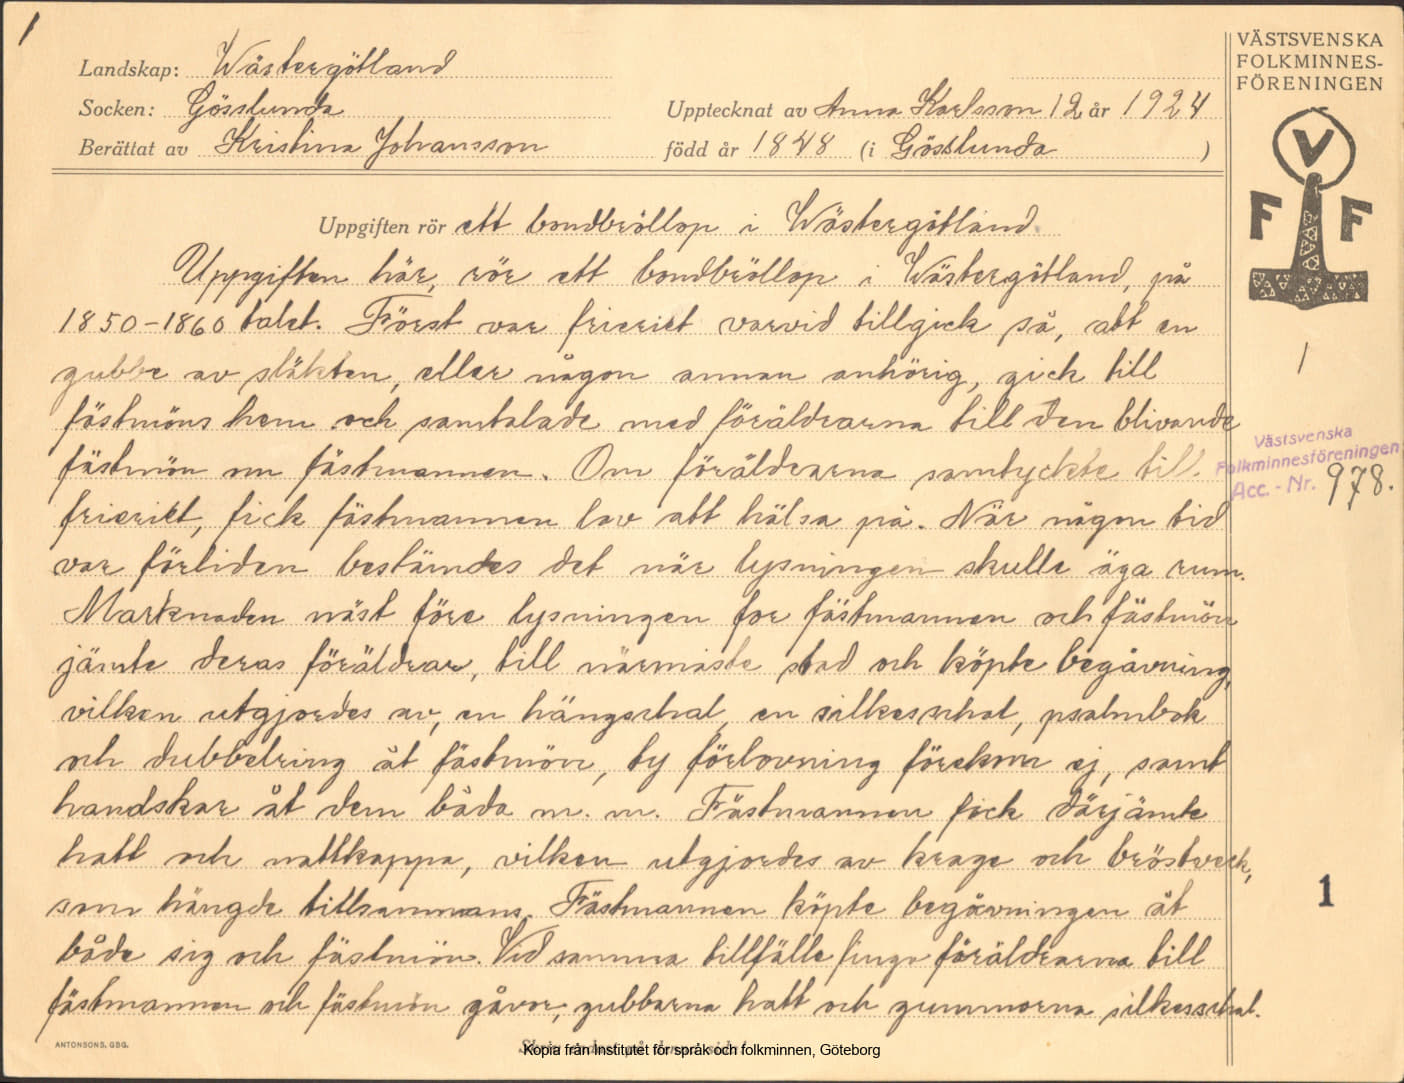 1
Landskap: Wästergötland
Socken: Gösslunda
Upptecknat av Anna Karlsson 12 år 1924
Berättat av Kristina Johansson
född år 1848 (i Gösslunda )
VÄSTSVENSKA
FOLKMINNES-
FÖRENINGEN
V
F F
Uppgiften rör ett bondbröllop i Wästergötland.
Uppgiften här, rör ett bondbröllop i Wästergötland, på
1850-1860 talet. Först var frieriet varvid tillgick så, att en
gubbe av släkten, eller någon annan anhörig, gick till
fästmöns hem och samtalade med föräldrarna till den blivande
fästmön om fästmannen. Om föräldrarna samtyckte till
frieriet, fick fästmannen lov att hälsa på. När någon tid
var förliden bestämdes det när lysningen skulle äga rum.
Marknaden näst före lysningen for fästmannen och fästmön
jämte deras föräldrar, till närmaste stad och köpte begåvning,
vilken utgjordes av, en hängschal, en silkesschal, psalmbok
och dubbelring åt fästmön, ty förlovning förekom ej, samt
handskar åt dem båda m. m. Fästmannen fick därjämte
hatt och nattkappa, vilken utgjordes av krage och bröstveck,
som hängde tillsammans. Fästmannen köpte begåvningen åt
både sig och fästmön. Vid samma tillfälle fingo föräldrarna till
fästmannen och fästmön gåvor, gubbarna hatt och gummorna silkesschal.
1
Västsvenska
Folkminnesföreningen
Acc.-Nr. 978.
1
ANTONSONS, GBG.
Kopia från Institutet för språk och folkminnen, Göteborg